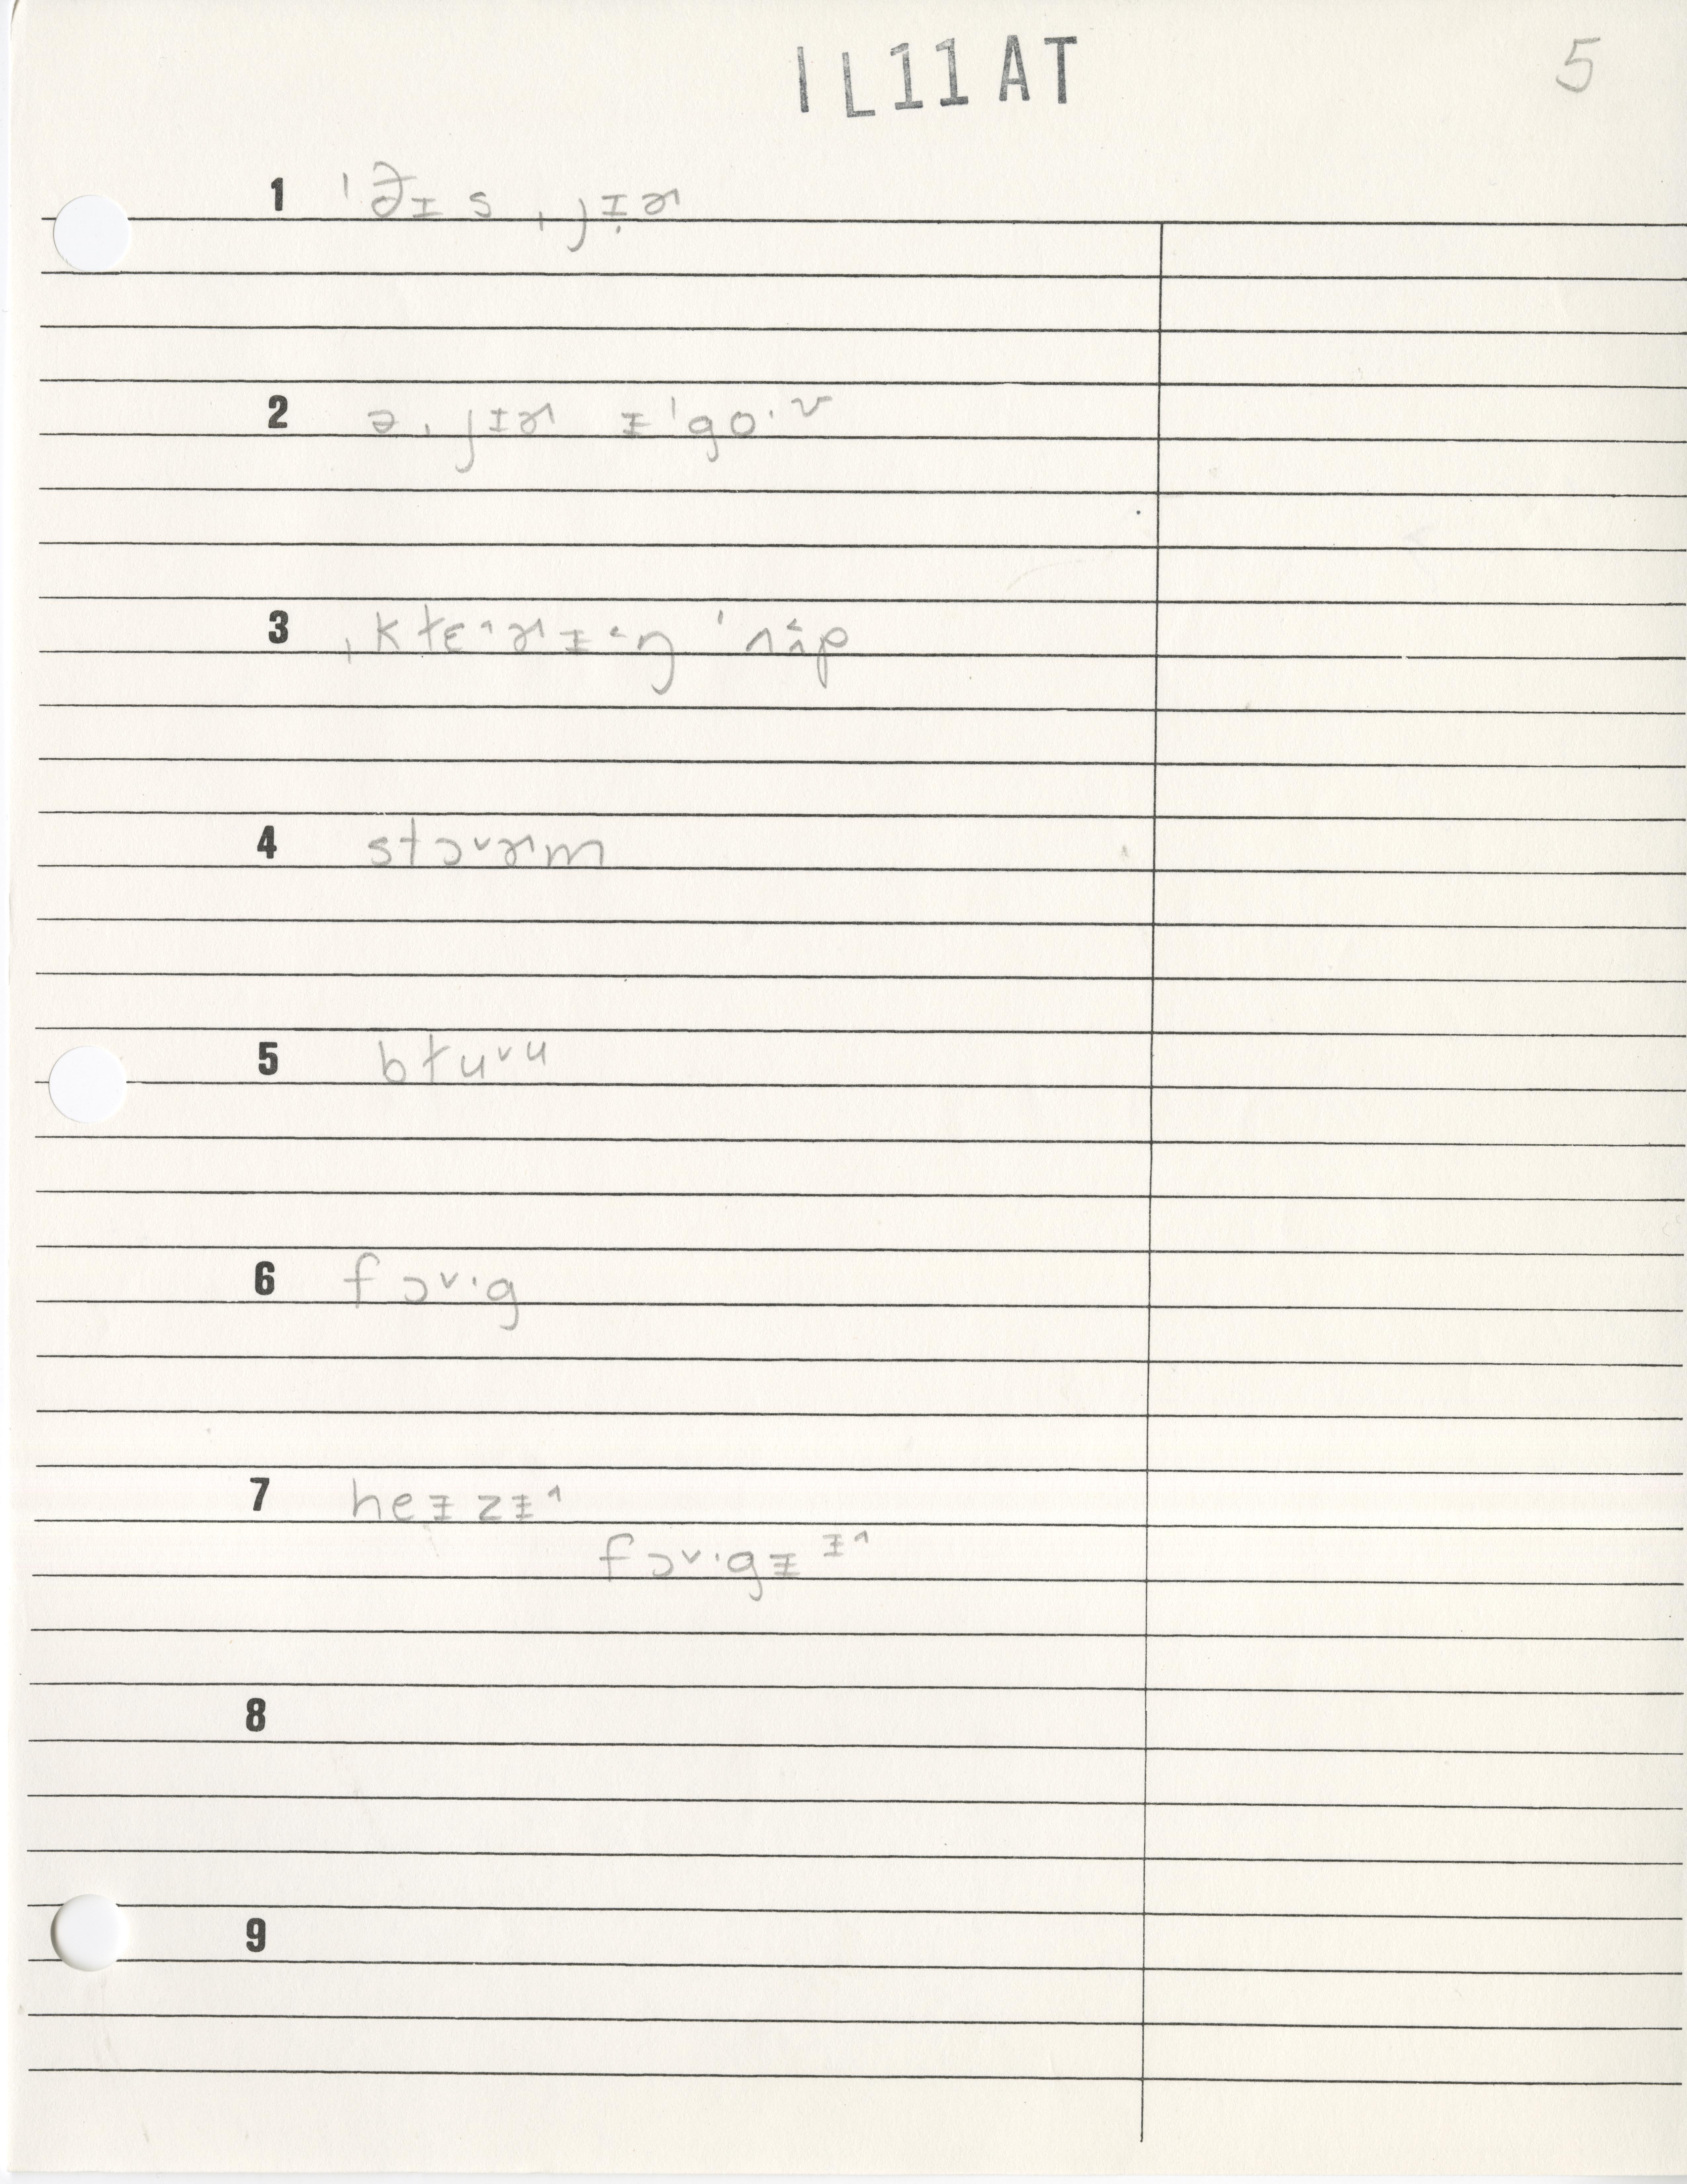 IL11AT
5
1 ˈðɪs ˌjɪ̣ɚ
2 ə ˌjɪɚ ɪˈgoˑᵛ
3 ˌkɫɛ˄ɚɪ˂ŋ ˈʌ˂̭p
4 stɔ˅ɚm
5 bɫu˅u
6 fɔ˅ˑg
7 heɪzɪ˄
fɔ˅ˑgɪɪ˄
8
9